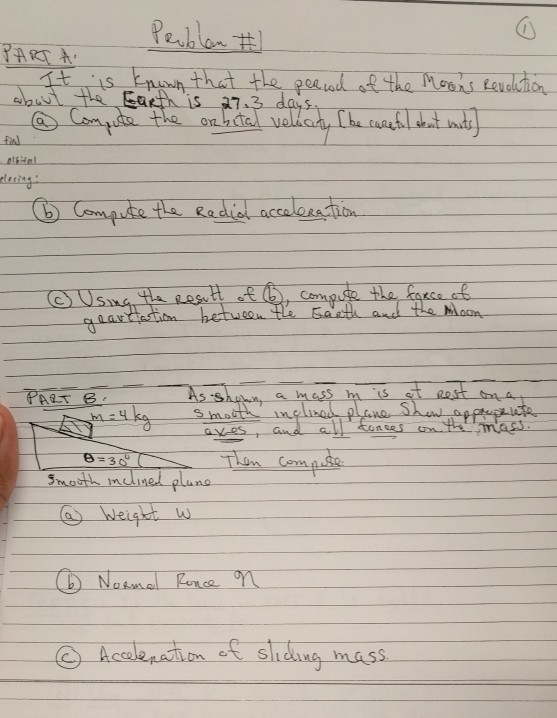 Problem #1
1
PART A.
It is known that the period of the Moon's Revolution
about the Earth is 27.3 days.
(a) Compute the orbital velocity [be careful about units]
find
orbital
(b) Compute the Radial acceleration.
(c) Using the result of (b), compute the force of
gravitation between the Earth and the Moon
PART B.
As shown, a mass m is at rest on a
m = 4 kg
smooth inclined plane. Show appropriate
axes, and all forces on the mass.
θ = 30°
Then compute
smooth inclined plane
(a) Weight W
(b) Normal Force n
(c) Acceleration of sliding mass.